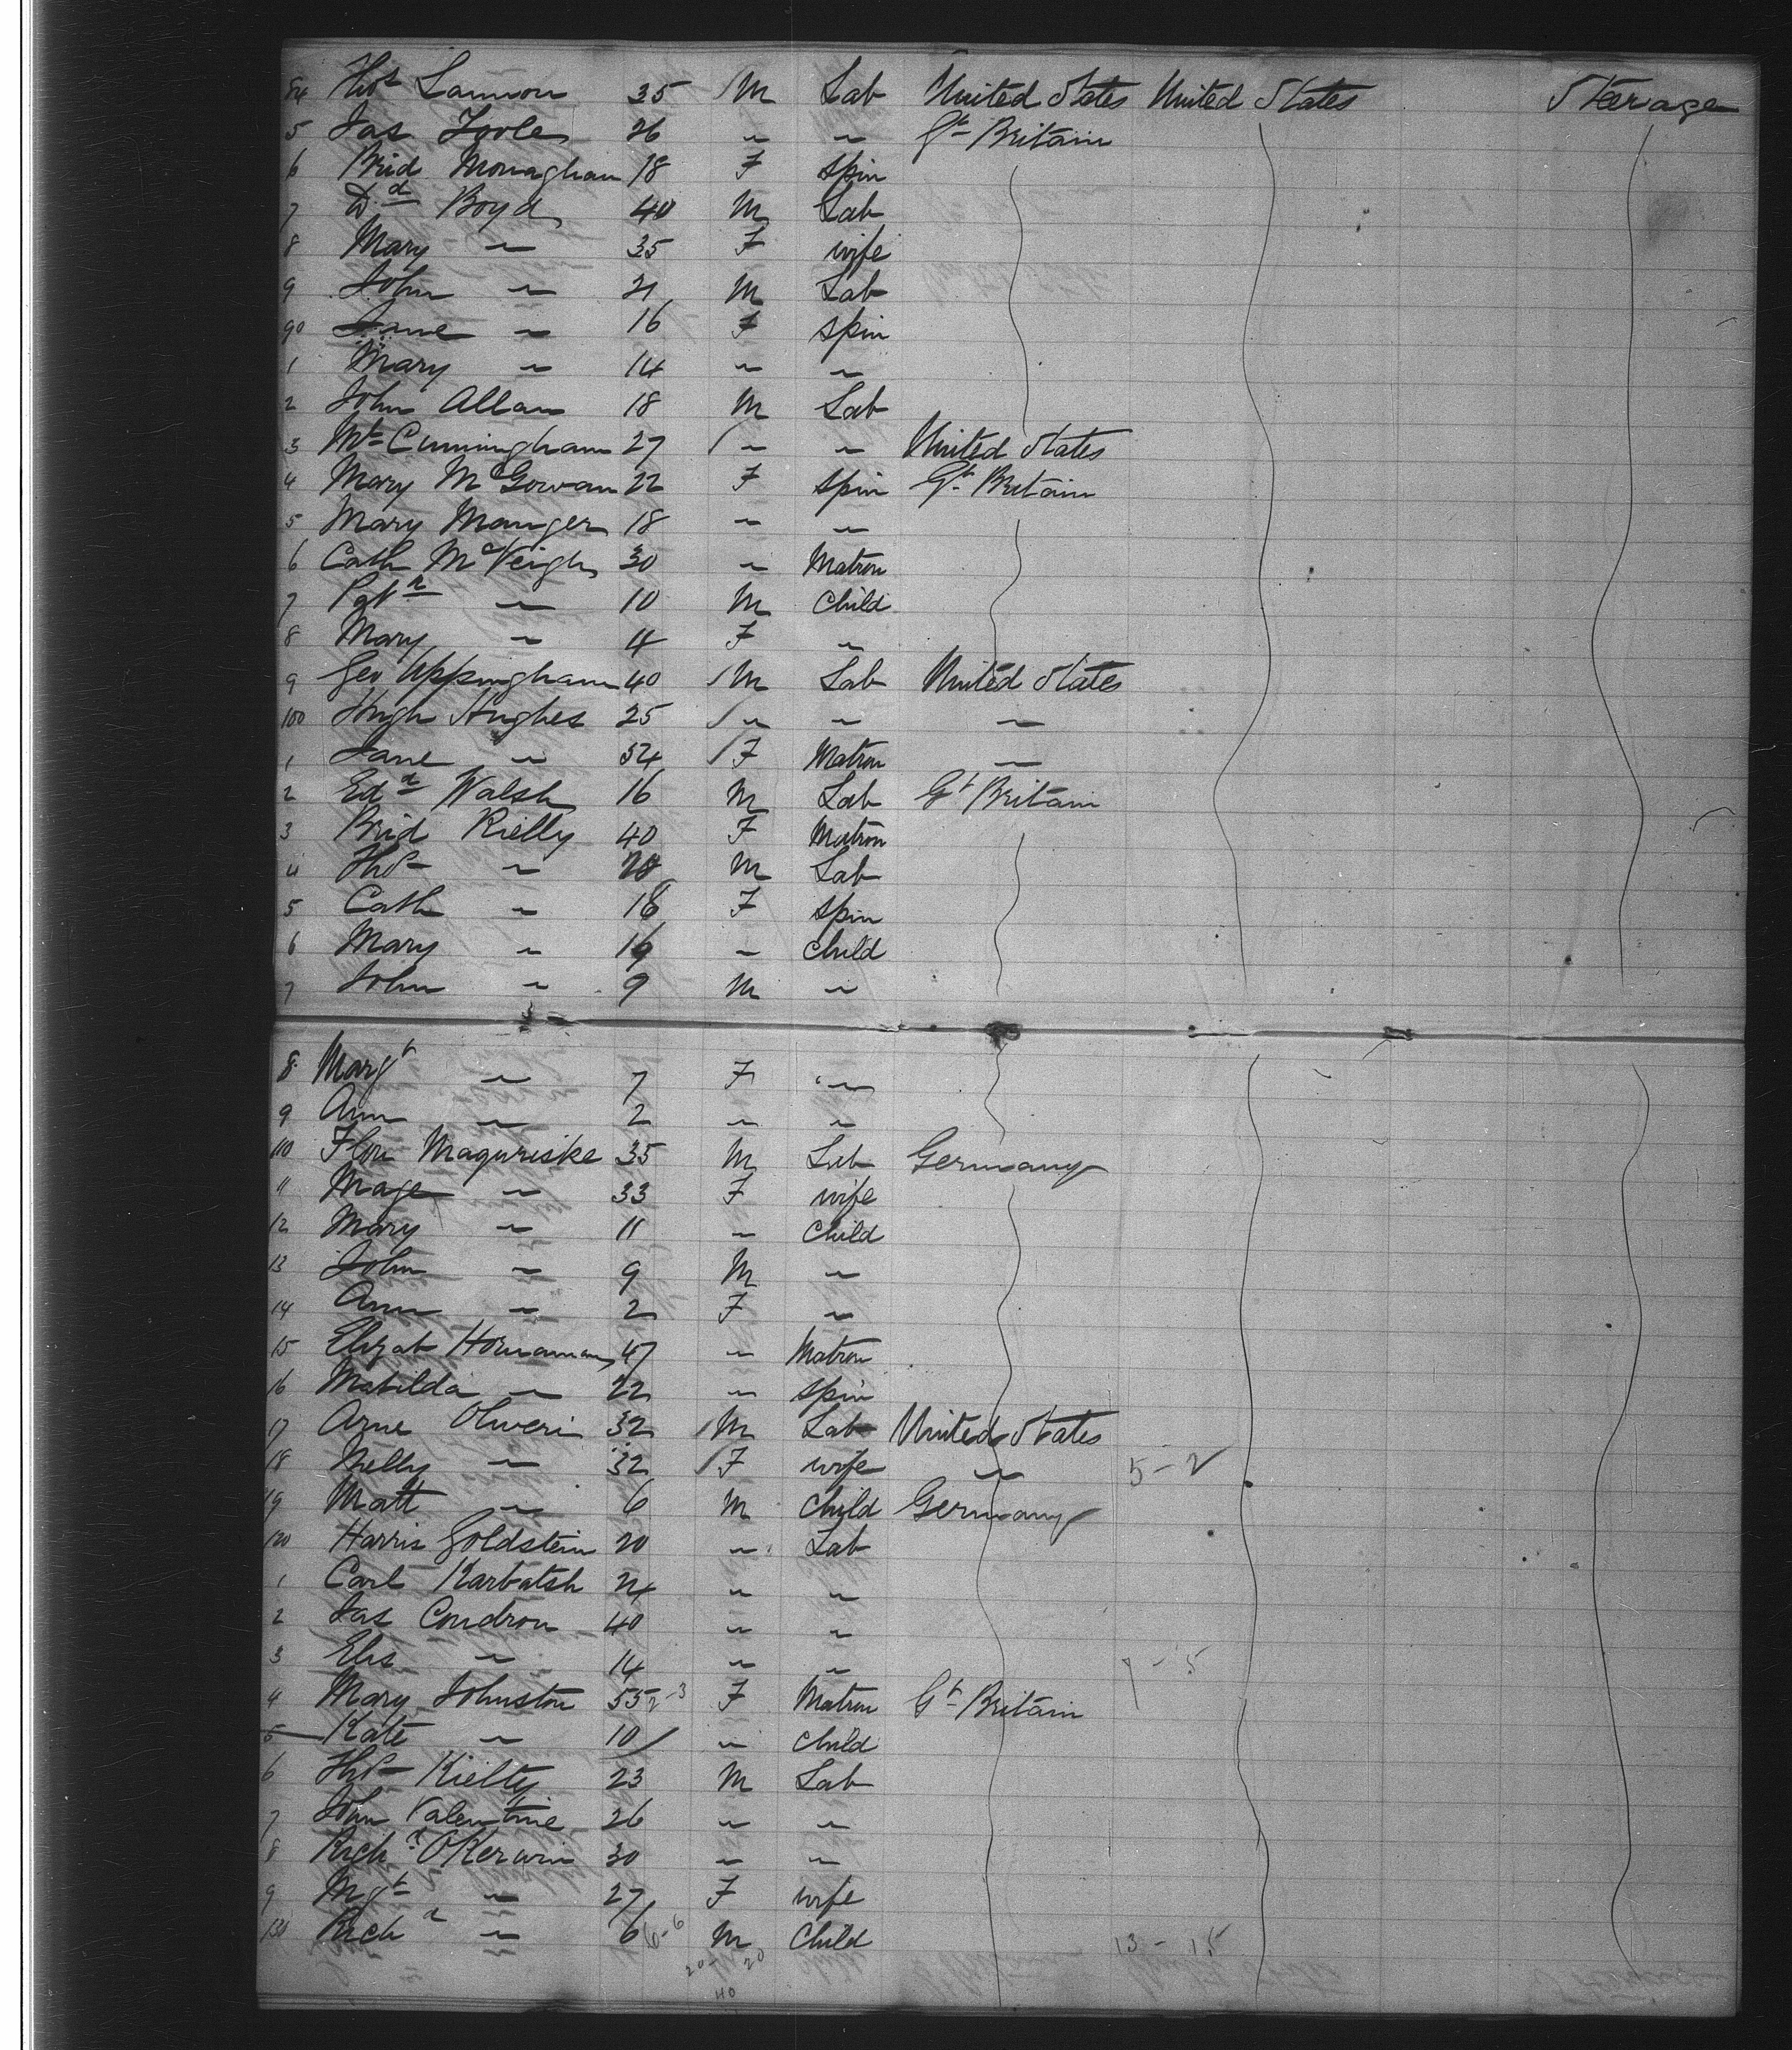 84 Thos Lannon 35 / M Lab United States United States Steerage
5 Jas Toole 26 " " Gt Britain
6 Brid Monaghan 18 F Spin
7 Dd Boyd 40 M Lab
8 Mary " 35 F wife
9 John " 21 M Lab
90 Jane " 16 F Spin
1 Mary " 14 " "
2 John Allan 18 M Lab
3 Mt Cunningham 27 / " " United States
4 Mary McGowan 22 F Spin Gt Britain
5 Mary Manger 18 " "
6 Cath McVeigh 30 " Matron
7 Patk " 10 M Child
8 Mary " 4 F "
9 Geo Uppingham 40 / M Lab United States
100 Hugh Hughes 25 / " " "
1 Jane " 54 / F Matron "
2 Edd Walsh 16 M Lab Gt Britain
3 Brid Rielly 40 F Matron
4 Thos " M Lab
5 Cath " 18 F Spin
6 Mary " 16 " Child
7 John " 9 M "
8 Margt " 7 F "
9 Ann " 2 " "
110 Flou Maguriske 35 M Lab Germany
11 Mage " 33 F wife
12 Mary " 11 " Child
13 John " 9 M "
14 Ann " 2 F "
15 Elizab Hornaman 47 " Matron
16 Matilda " 22 " Spin
17 Arne Oliveri 32 / M Lab United States
18 Nelly " 32 / F wife " 5-2
19 Matt " 6 M Child Germany
120 Harris Goldstein 20 " Lab
1 Carl Karbatsh 24 " "
2 Jas Condron 40 " "
3 Elis " 14 " " 7-5
4 Mary Johnston 55 2-3 F Matron Gt Britain
5 Kate " 10 / " Child
6 Thos Kielty 23 M Lab
7 John Valentine 26 " "
8 Richd O'Kerwin 30 " "
9 Mgt " 27 F wife
130 Richd " 6 6-6 M Child 13-15
20- 20
40